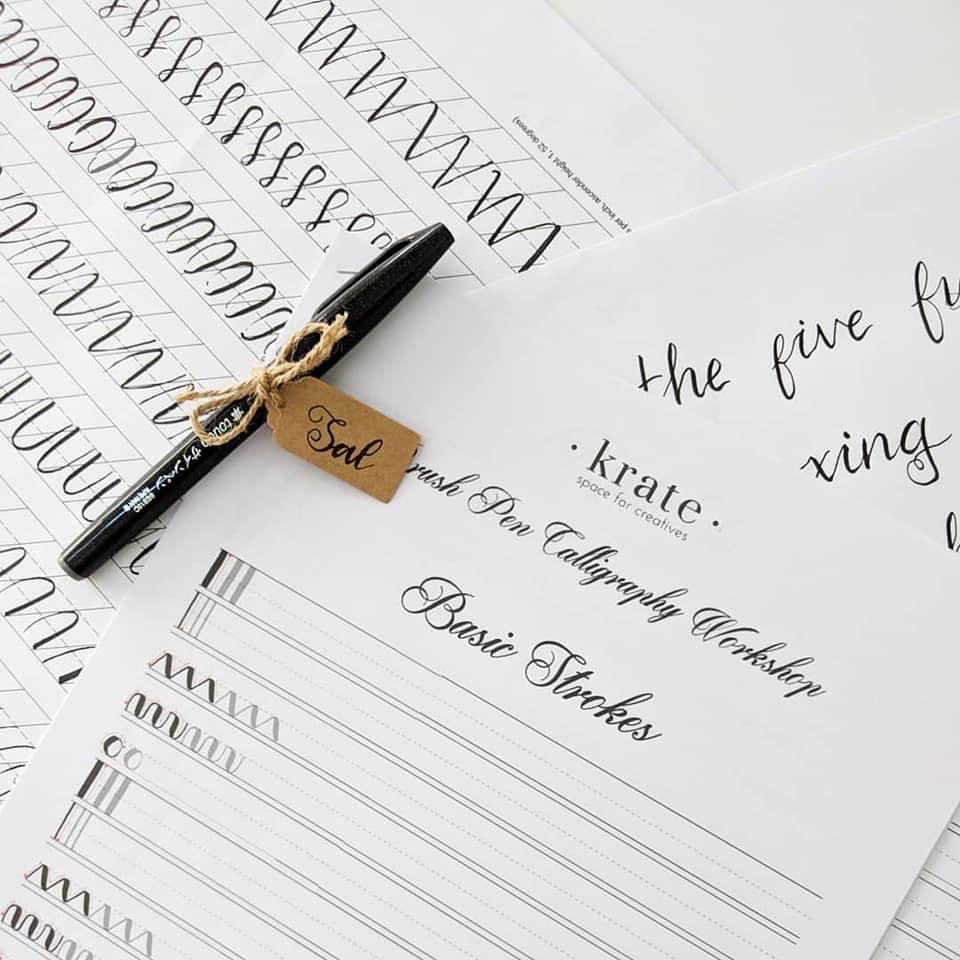 per inch, ascender height 1, 52 degrees)
the five fu
xing
筆touch サインペン
Sal
krate
space for creatives
rush Pen Calligraphy Workshop
Basic Strokes